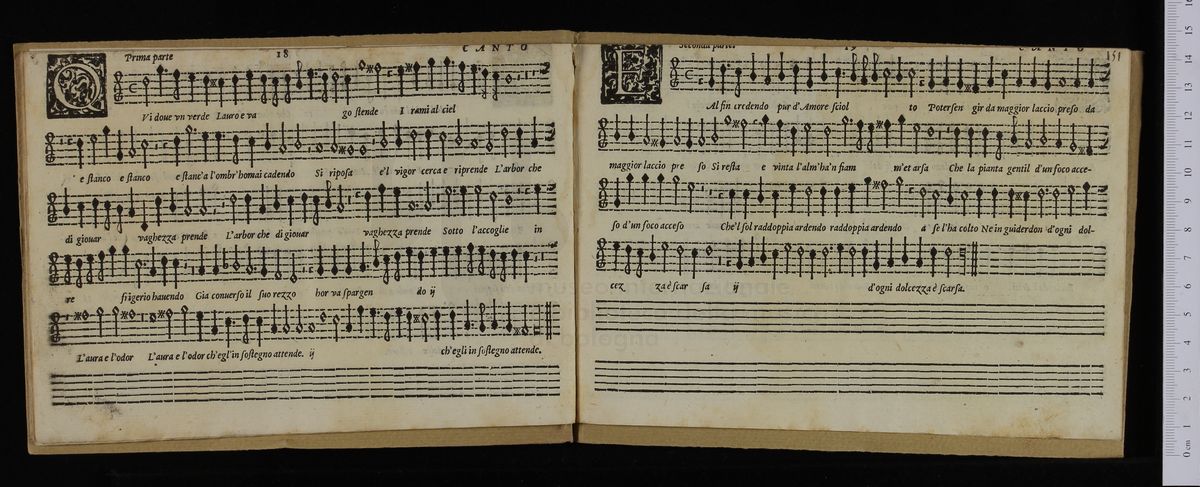 Prima parte 18 CANTO
Q Vi doue vn verde Lauro e va go stende I rami al ciel
e stanco e stanco e stanc'a l'ombr' homai cadendo Si riposa e'l vigor cerca e riprende L'arbor che
di giouar vaghezza prende L'arbor che di giouar vaghezza prende Sotto l'accoglie in
re frigerio hauendo Gia conuerso il suo rezzo hor va spargendo ij
L'aura e l'odor L'aura e l'odor ch'egl'in sostegno attende. ij ch'egli in sostegno attende.
Seconda parte. 19 CANTO 151
E Al fin credendo pur d'Amore sciol to Poter sen gir da maggior laccio preso da
maggior laccio pre so Si resta e vinta l'alm' ha'n fiam m'et arsa Che la pianta gentil d'un foco acce-
so d'un foco acceso Che'l sol raddoppia ardendo raddoppia ardendo a se l'ha colto Ne in guiderdon d'ogni dol-
cez za è scar sa ij d'ogni dolcezza è scarsa.
museo internazionale
bologna
0 cm 1 2 3 4 5 6 7 8 9 10 11 12 13 14 15 16